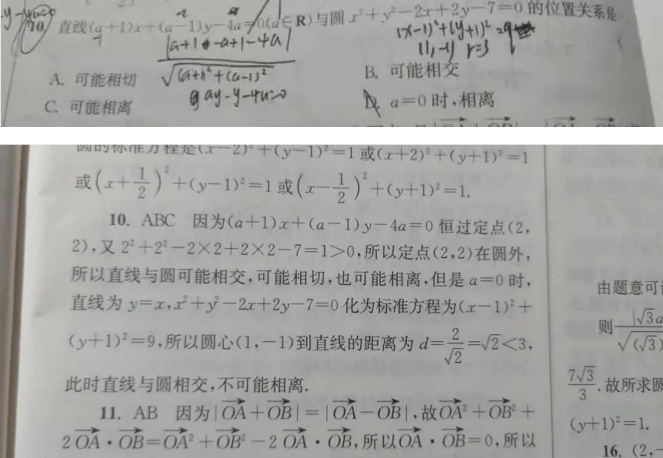 10. 直线(a+1)x+(a-1)y-4a=0(a∈R)与圆 x²+y²-2x+2y-7=0 的位置关系是
|a+1-a+1-4a|
(x-1)²+(y+1)²=9
(1,-1) r=3
A. 可能相切
√(a+1)²+(a-1)²
B. 可能相交
C. 可能离
D. a=0 时,相离
圆的标准方程是(x-2)²+(y-1)²=1 或(x+2)²+(y+1)²=1
或(x+1/2)²+(y-1)²=1 或(x-1/2)²+(y+1)²=1.
10. ABC 因为(a+1)x+(a-1)y-4a=0 恒过定点(2,
2),又 2²+2²-2×2+2×2-7=1>0,所以定点(2,2)在圆外,
所以直线与圆可能相交,可能相切,也可能相离,但是 a=0 时,
直线为 y=x,x²+y²-2x+2y-7=0 化为标准方程为(x-1)²+
(y+1)²=9,所以圆心(1,-1)到直线的距离为 d=2/√2=√2<3,
此时直线与圆相交,不可能相离.
11. AB 因为|OA+OB|=|OA-OB|,故OA²+OB²+
2 OA·OB=OA²+OB²-2 OA·OB,所以OA·OB=0,所以
由题意可
则 |√3a
√(√3)
7√3/3.故所求圆
(y+1)²=1.
16. (2,-